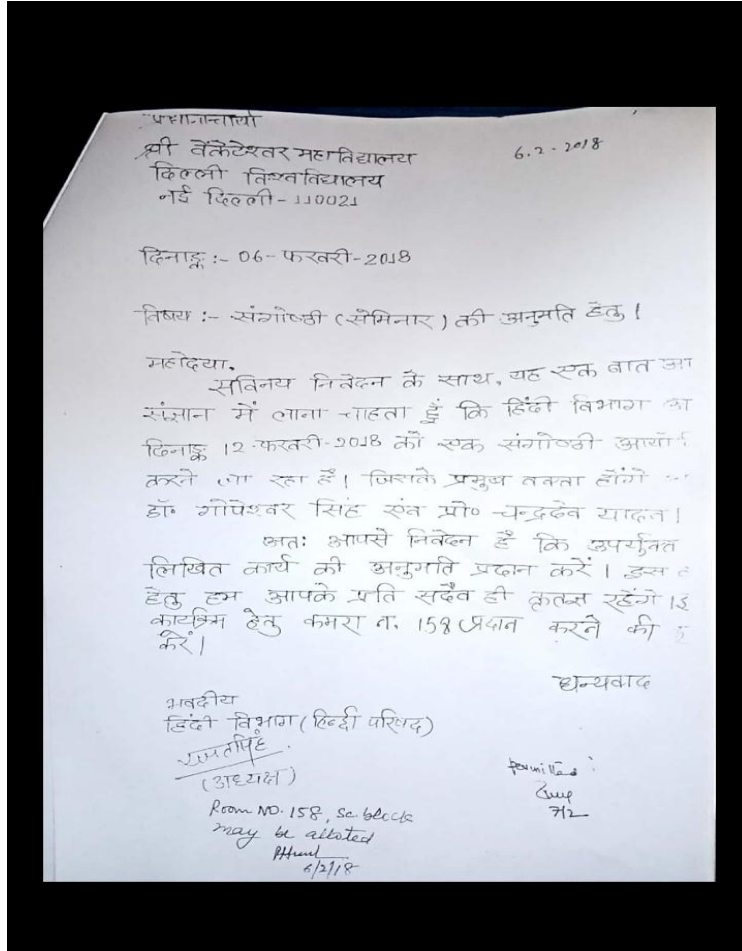 प्रधानाचार्या
श्री वेंकेटेश्वर महाविद्यालय
6.2-2018
दिल्ली विश्वविद्यालय
नई दिल्ली-110021
दिनाङ्क :- 06-फरवरी-2018
विषय :- संगोष्ठी (सेमिनार) की अनुमति हेतु।
महोदया,
सविनय निवेदन के साथ, यह एक बात
संज्ञान में लाना चाहता हूँ कि हिंदी विभाग
दिनाङ्क 12-फरवरी-2018 को एक संगोष्ठी
करने जा रहा है। जिसके प्रमुख वक्ता होंगे
डॉ० गोपेश्वर सिंह एंव प्रो० चन्द्रदेव यादव।
अतः आपसे निवेदन है कि उपर्युक्त
लिखित कार्य की अनुमति प्रदान करें। इस
हेतु हम आपके प्रति सदैव ही कृतज्ञ रहेंगे।
कार्यक्रम हेतु कमरा न. 158 प्रदान करने की
करें।
धन्यवाद
भवदीय
हिंदी विभाग (हिन्दी परिषद)
(अध्यक्ष)
Permitted
7/2
Room NO. 158, Sc. block
may be alloted
6/2/18